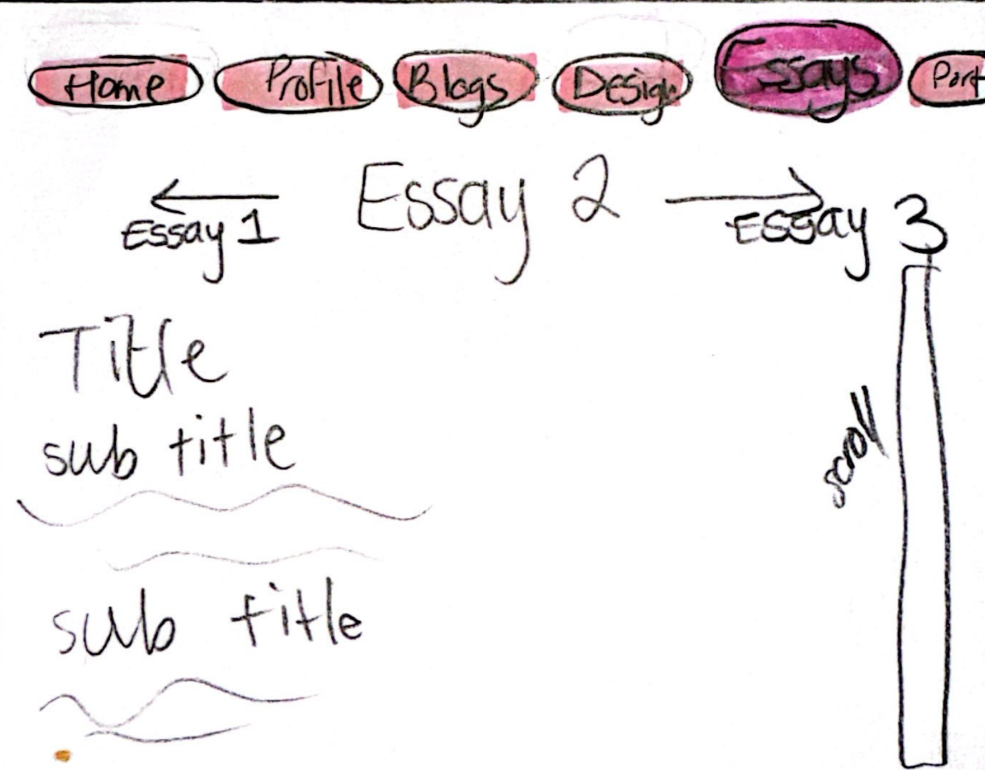 Home Profile Blogs Design Essays Port
Essay 2
Essay 1
Essay 3
Title
sub title
sub title
scroll